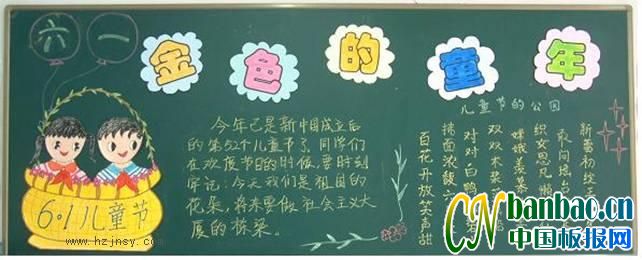 六一
金色的童年
今年已是新中国成立后
的第52个儿童节了,同学们
在欢度节日的时候,要时刻
牢记:今天我们是祖国的
花朵,将来要做社会主义大
厦的栋梁。
儿童节的公园
新蕾初绽
织女思凡
嫦娥羡
双双木桨
对对白鹅
桃面浓馥
百花开放笑声甜
6·1儿童节
www.hzjnsy.com
CNbanbao.cn
中国板报网